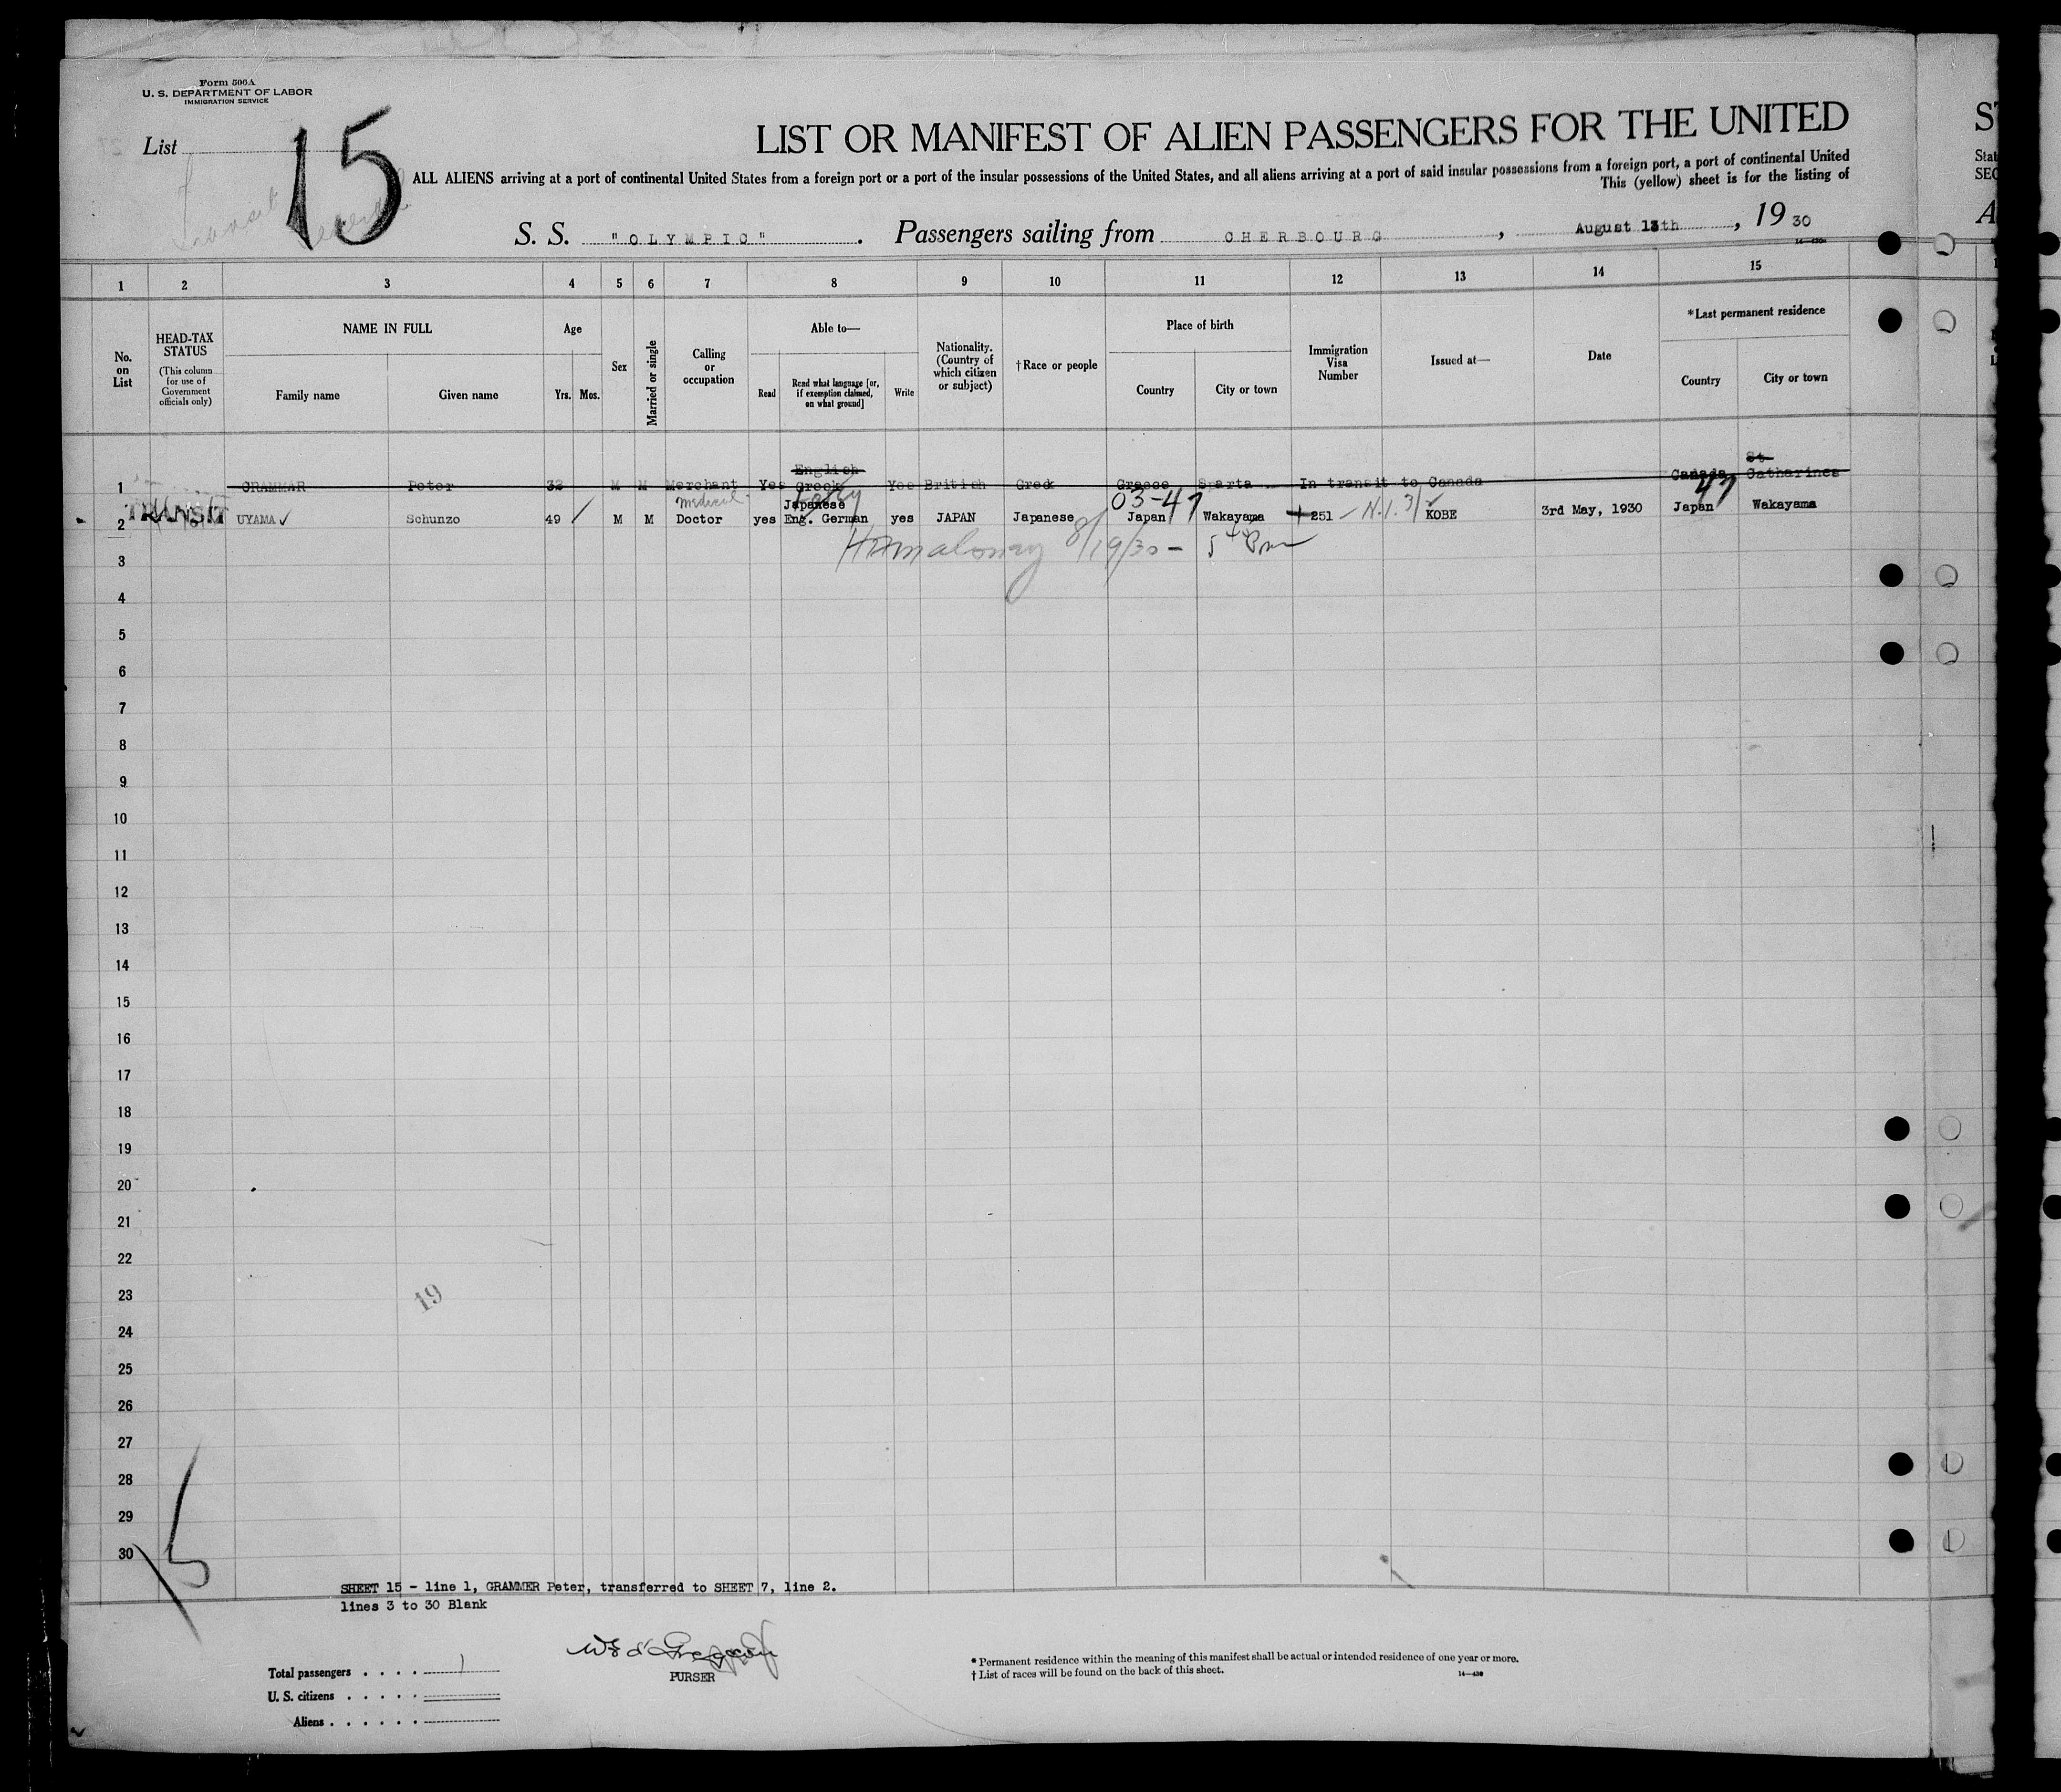 Form 500A
U. S. DEPARTMENT OF LABOR
IMMIGRATION SERVICE
List 15
LIST OR MANIFEST OF ALIEN PASSENGERS FOR THE UNITED
ALL ALIENS arriving at a port of continental United States from a foreign port or a port of the insular possessions of the United States, and all aliens arriving at a port of said insular possessions from a foreign port, a port of continental United
This (yellow) sheet is for the listing of
S. S. "OLYMPIC". Passengers sailing from CHERBOURG, August 13th, 19 30
1 2 3 4 5 6 7 8 9 10 11 12 13 14 15
No. on List
HEAD-TAX STATUS
(This column for use of Government officials only)
NAME IN FULL
Family name Given name
Age
Yrs. Mos.
Sex
Married or single
Calling or occupation
Able to—
Read Read what language [or, if exemption claimed, on what ground] Write
Nationality. (Country of which citizen or subject)
†Race or people
Place of birth
Country City or town
Immigration Visa Number
Issued at—
Date
*Last permanent residence
Country City or town
1 GRAMMAR Peter 32 M M Merchant Yes English Greek Yes British Greek Greece Sparta In transit to Canada Canada St. Catharines
TRANSIT
2 UYAMA ✓ Schunzo 49 M M Medical Doctor yes Japanese Eng. German yes JAPAN Japanese 03-47 Japan Wakayama 251 KOBE 3rd May, 1930 47 Japan Wakayama
8/19/30 -
3
4
5
6
7
8
9
10
11
12
13
14
15
16
17
18
19
20
21
22
23
19
24
25
26
27
28
29
30
15
SHEET 15 - line 1, GRAMMER Peter, transferred to SHEET 7, line 2.
lines 3 to 30 Blank
Total passengers . . . . 1
U. S. citizens . . . . .
Aliens . . . . . .
PURSER
* Permanent residence within the meaning of this manifest shall be actual or intended residence of one year or more.
† List of races will be found on the back of this sheet.
14—430